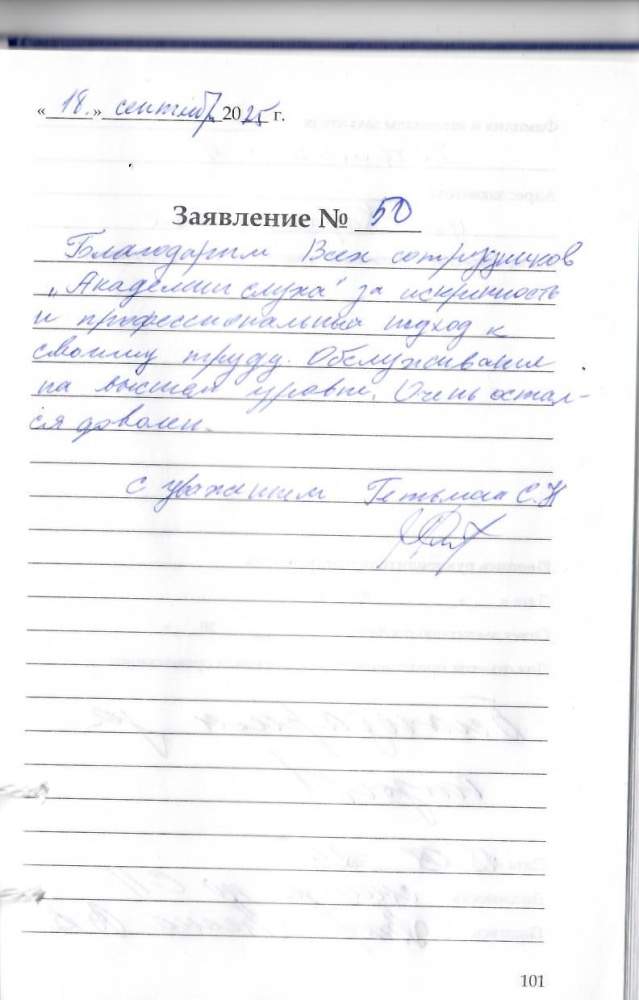 «18.» сентября 2025 г.
Заявление № 50
Благодарим Всех сотрудников
„Академии слуха" за искренность
и профессиональный подход к
своему труду. Обслуживание
на высшем уровне. Очень остал-
ся доволен.
С уважением Гетьман С.Н
101